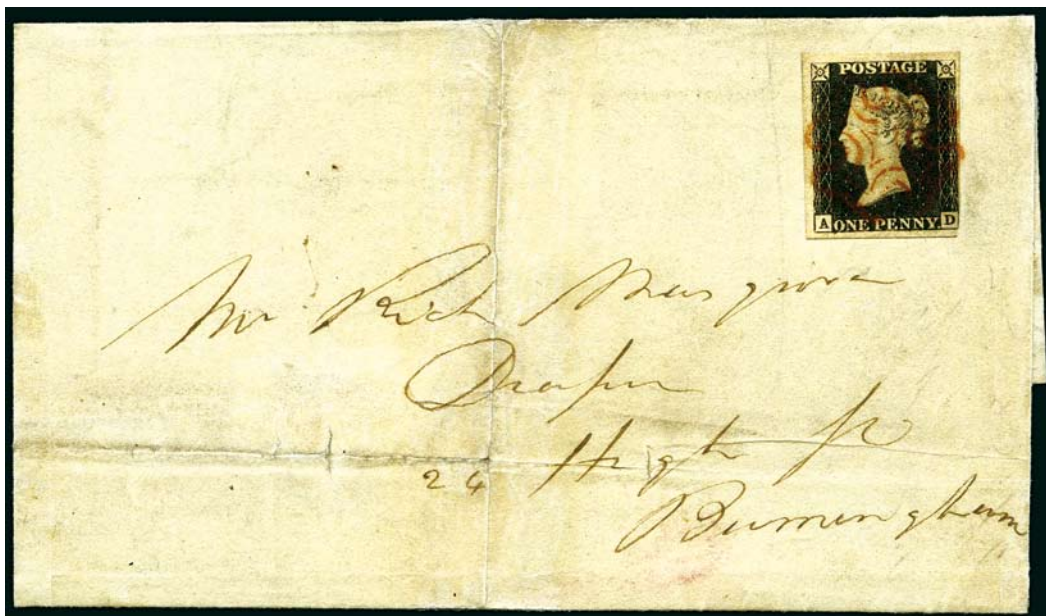 POSTAGE
A ONE PENNY D
Mr Rich Musgrove
Draper
24 High St
Birmingham